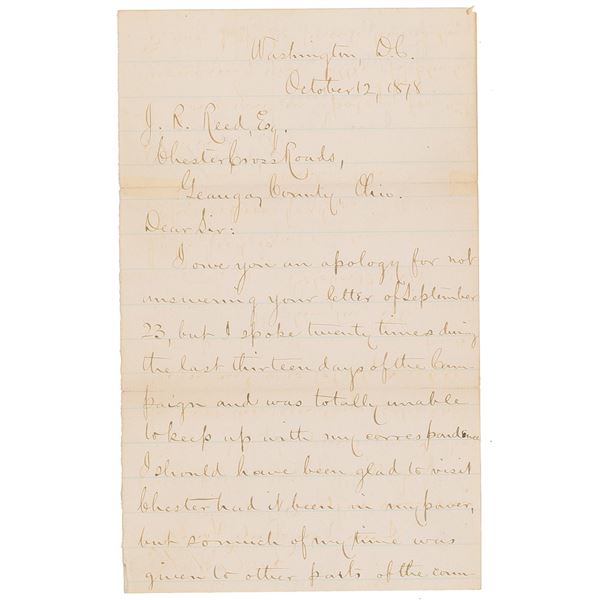 Washington, D.C.
October 12, 1878
J. R. Reed, Esq.
Chester Cross Roads,
Geauga County, Ohio.
Dear Sir:
I owe you an apology for not
answering your letter of September
23, but I spoke twenty times during
the last thirteen days of the Cam-
paign and was totally unable
to keep up with my correspondence
I should have been glad to visit
Chester had it been in my power,
but so much of my time was
given to other parts of the coun-